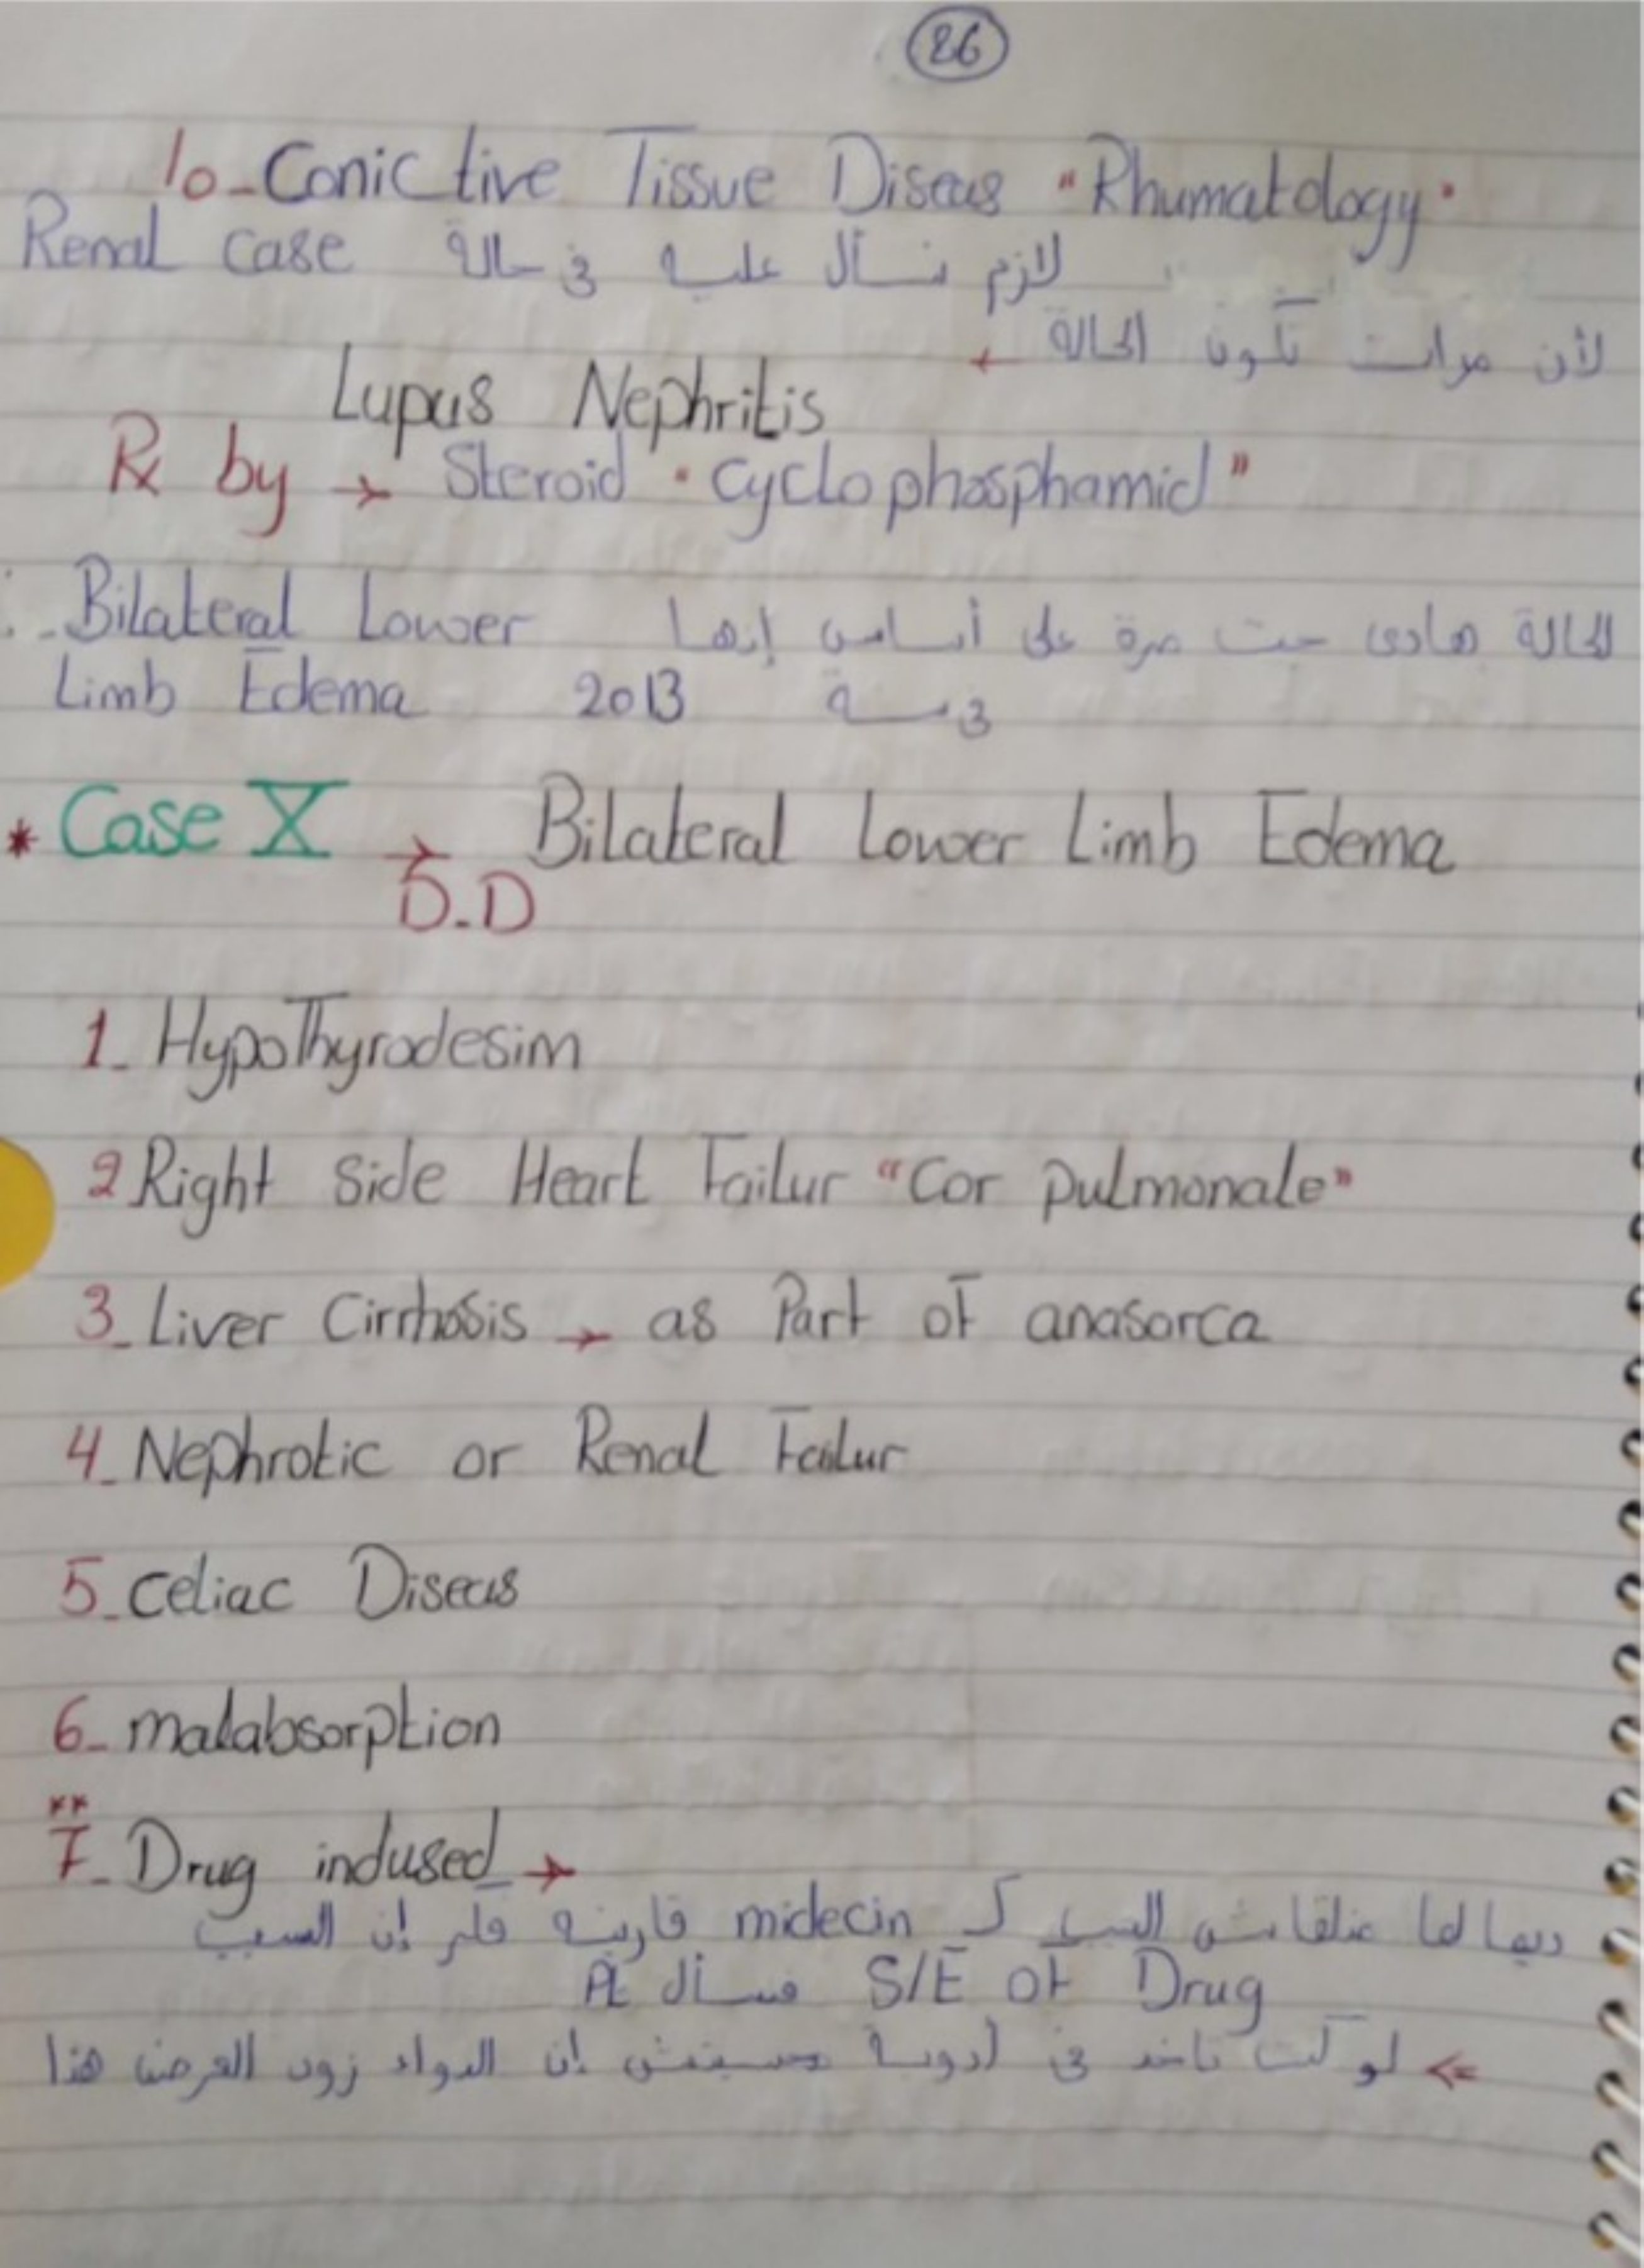 26
10-Conictive Tissue Diseas "Rhumatology"
لازم نسأل عليه في حالة Renal case
لأن مرات تكون الحالة ←
Lupus Nephritis
Rx by → Steroid "Cyclophosphamid"
الحالة هادي جت مرة على أساس إنها Bilateral Lower
Limb Edema 2013 في سنة
* Case X → Bilateral Lower Limb Edema
D.D
1- Hypothyrodesim
2 Right Side Heart Failur "Cor pulmonale"
3- Liver Cirrhosis → as Part of anasarca
4- Nephrotic or Renal Failur
5- Celiac Diseas
6- malabsorption
**
7- Drug indused →
ديما لما منلقاش السبب ك midecin إن السبب
S/E of Drug نسأل Pt
⇐ لو كنت تاخد في أدوية إن الدواء زود العرض هذا